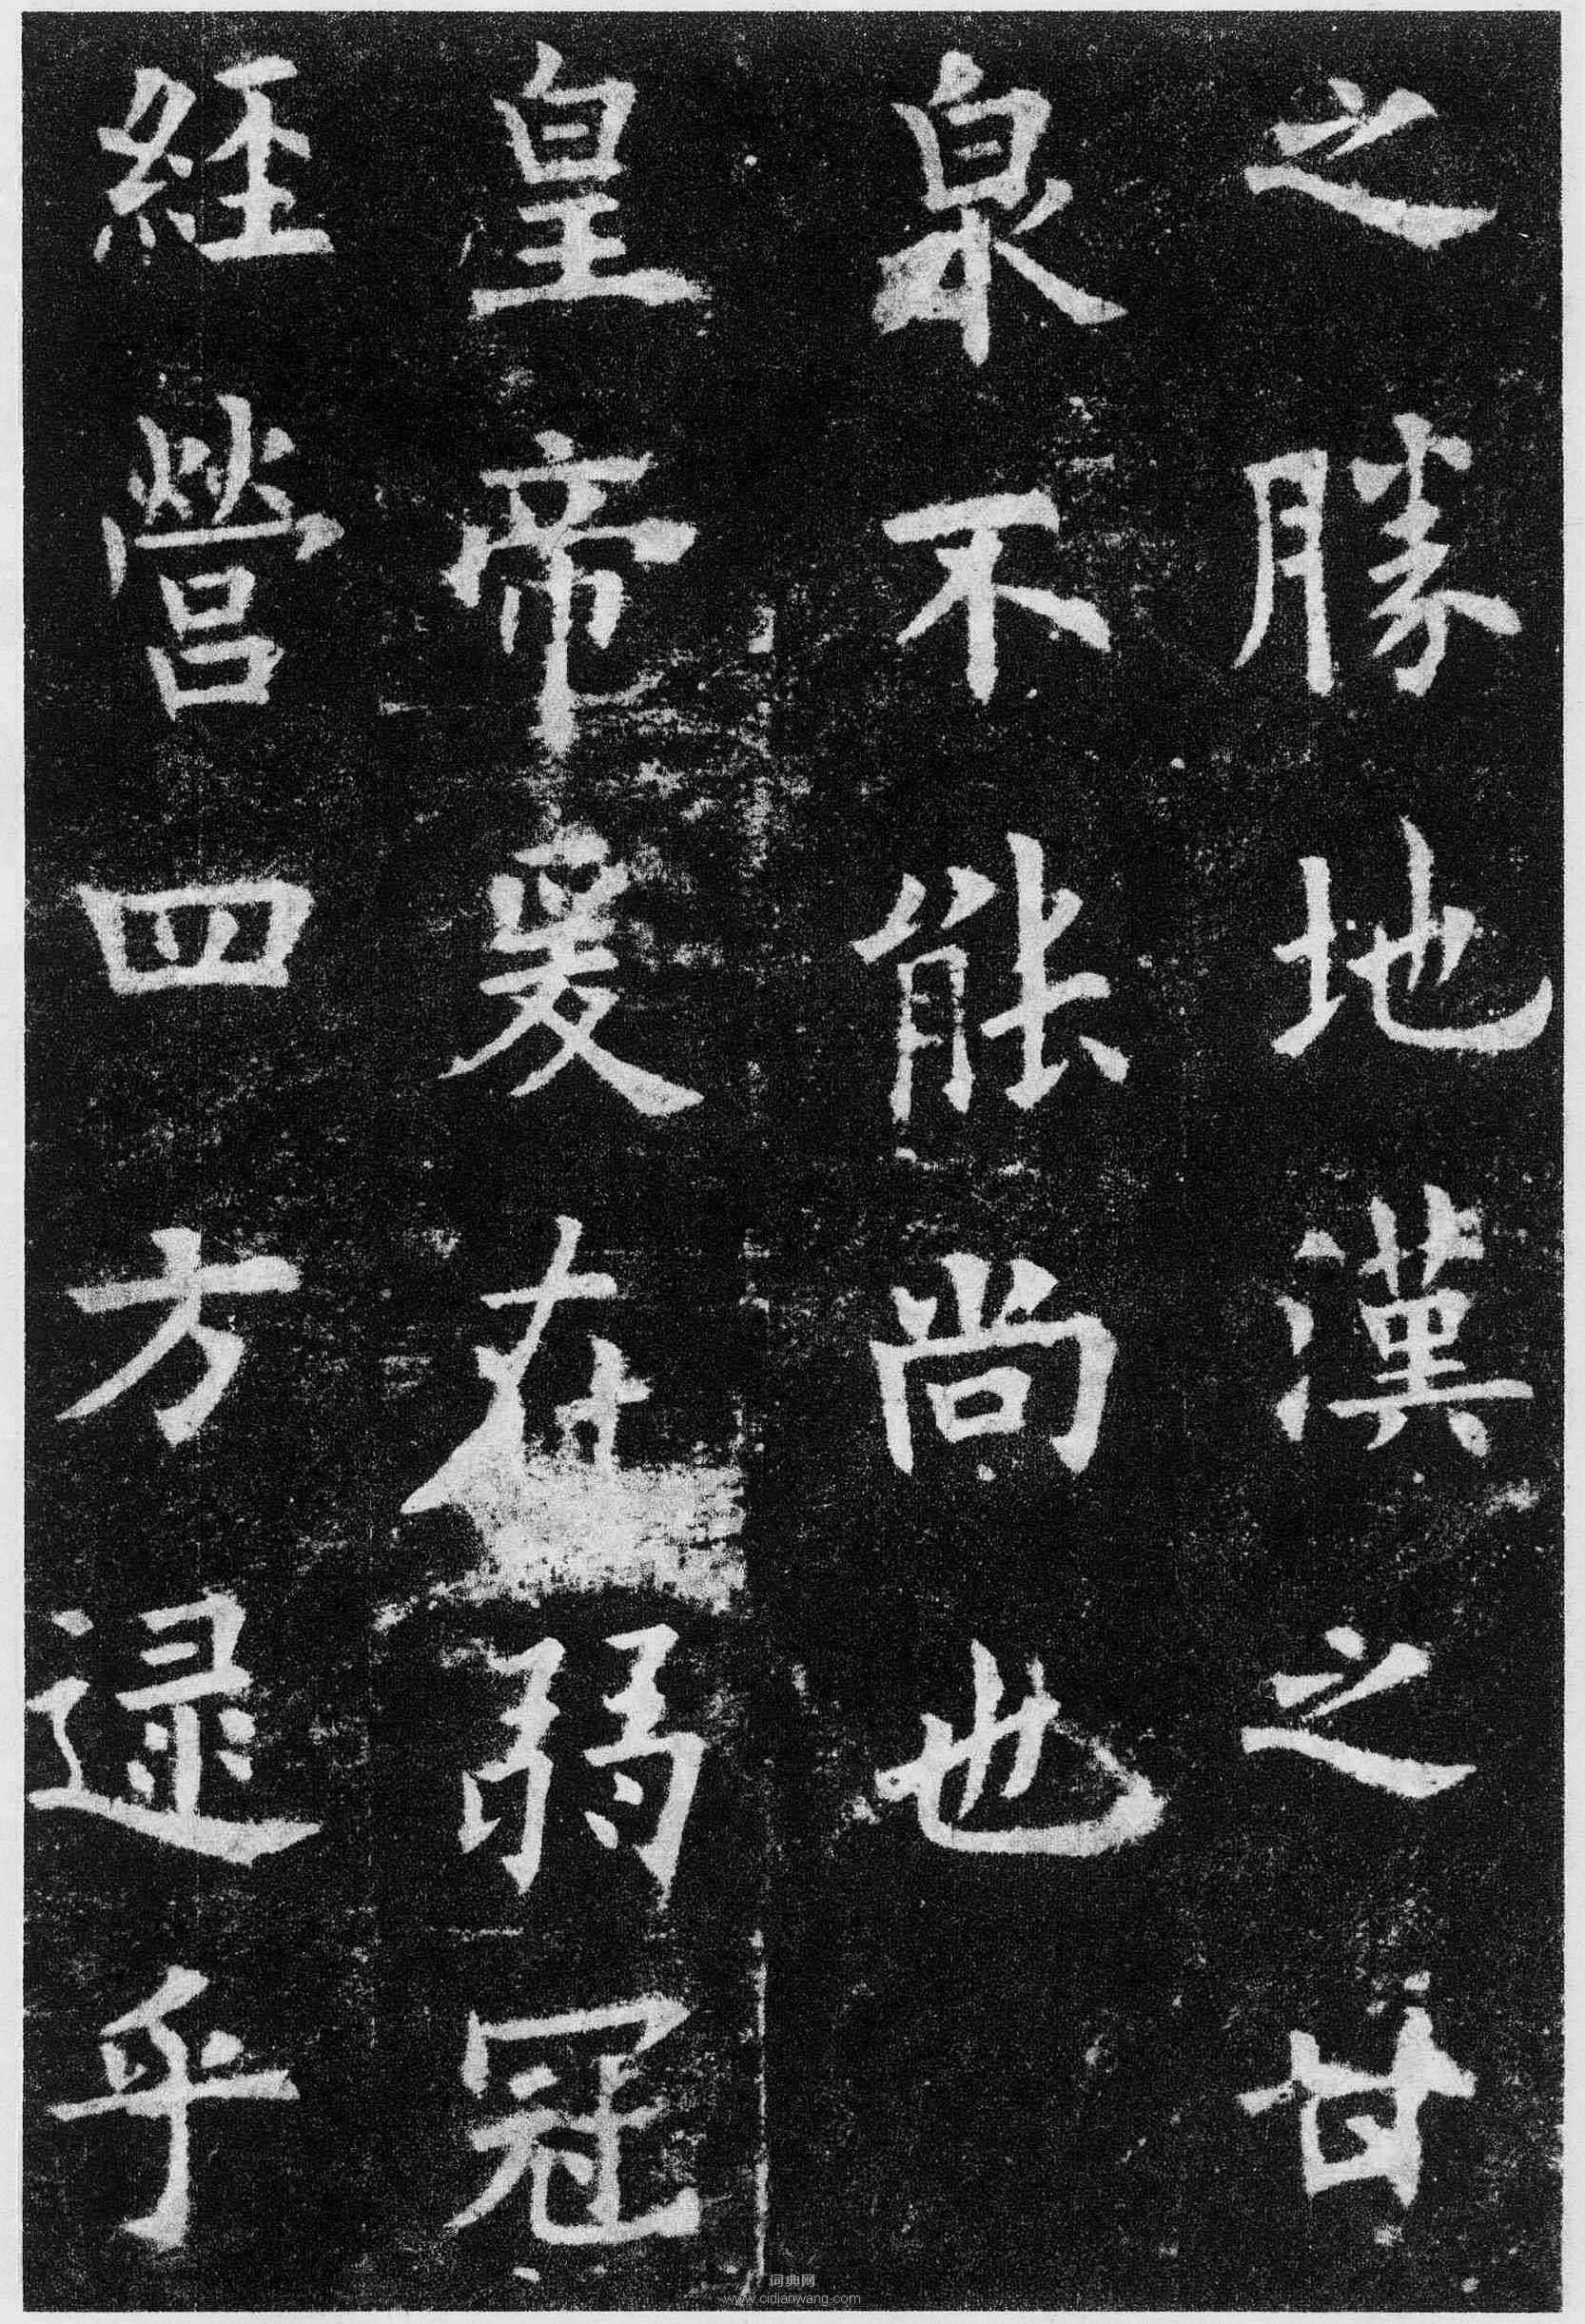 之勝地漢之甘
泉不能尚也
皇帝爰在弱冠
經營四方逯乎
词典网
www.cidianwang.com